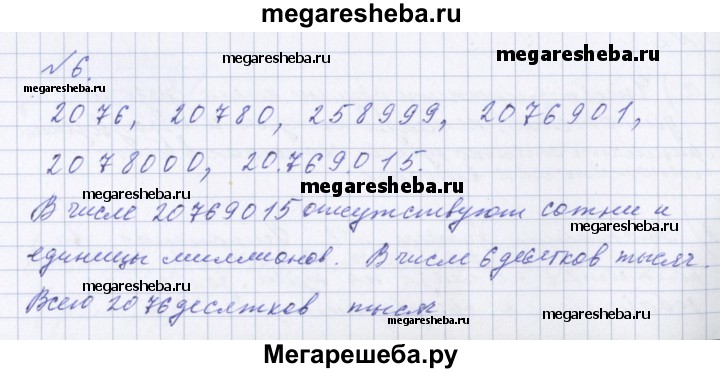 megaresheba.ru
№ 6.
megaresheba.ru
megaresheba.ru
megaresheba.ru
2076, 20780, 258999, 2076901,
2078000, 20.769.015.
megaresheba.ru
megaresheba.ru
В числе 20769015 отсутствуют сотни и
megaresheba.ru
единицы миллионов. В числе 6 десятков тысяч.
megaresheba.ru
Всего 2076 десятков тысяч
megaresheba.ru
megaresheba.ru
Мегарешеба.ру